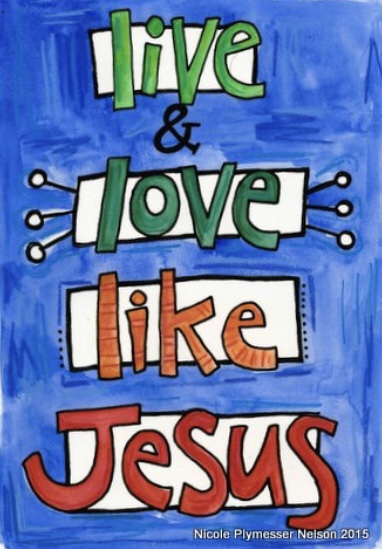 live
&
love
like
Jesus
Nicole Plymesser Nelson 2015